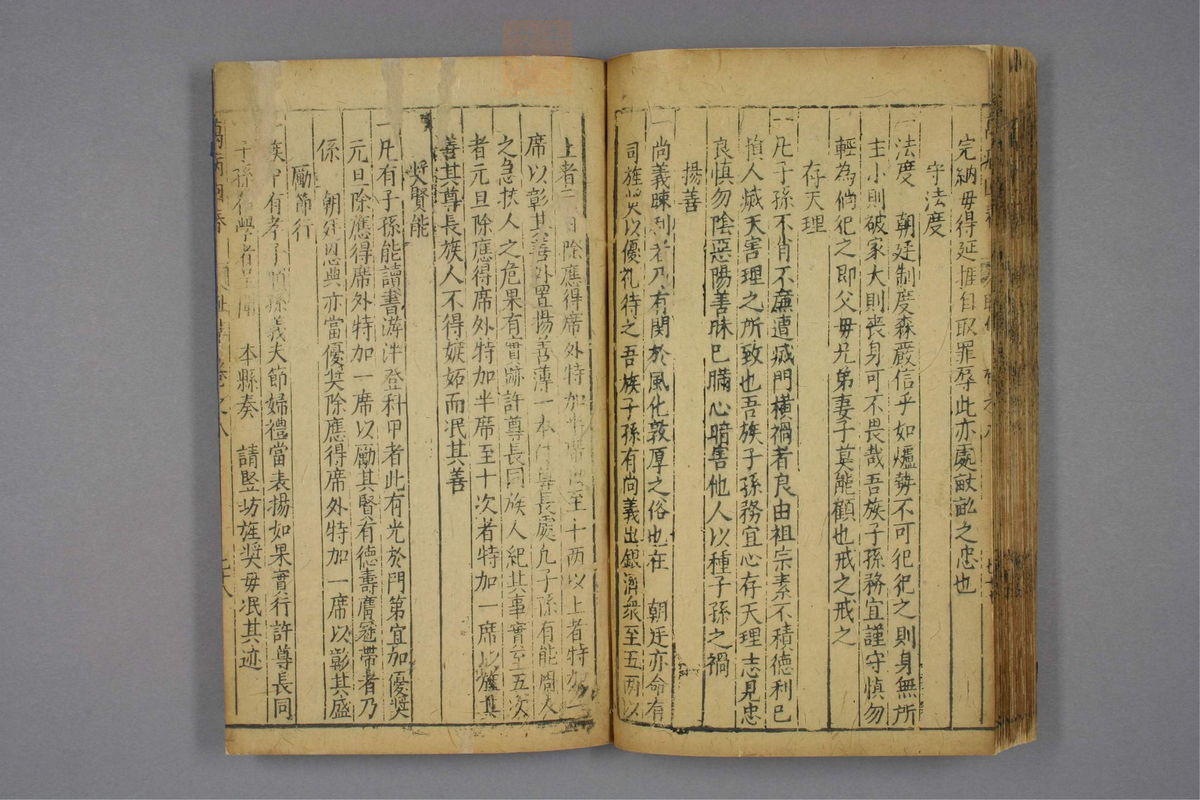 完納毋得延推自取罪辱此亦處畎畝之忠也
守法度
一法度 朝廷制度森嚴信乎如爐勢不可犯犯之則身無所
主小則破家大則喪身可不畏哉吾族子孫務宜謹守慎勿
輕為倘犯之即父毋兄弟妻子莫能顧也戒之戒之
存天理
一凡子孫不肖不廉遭滅門橫禍者良由祖宗素不積德利已
損人滅天害理之所致也吾族子孫務宜心存天理志見忠
良慎勿陰惡陽善昧已瞞心暗害他人以種子孫之禍
揚善
一尚義疎利者乃有関於風化敦厚之俗也在 朝廷亦命有
司旌奬以優礼待之吾族子孫有尚義出銀濟衆至五两以
上者元旦除應得席外特加半席至十两以上者特加一
席以彰其善外置揚善薄一本付尊長處凢子孫有能周人
之急扶人之危果有實跡許尊長同族人紀其事實至五次
者元旦除應得席外特加半席至十次者特加一席以旌其
善其尊長族人不得嫉妬而泯其善
奬賢能
一凢有子孫能讀書游泮登科甲者此有光於門第宜加優奬
元旦除應得席外特加一席以勵其賢有德壽膺冠帶者乃
係 朝廷恩典亦當優奖除應得席外特加一席以彰其盛
勵節行
一族中有孝子順孫義夫節婦禮當表揚如果實行許尊長同
子孫有學者呈闻 本縣奏 請竪坊旌奬毋泯其迹
卷之八